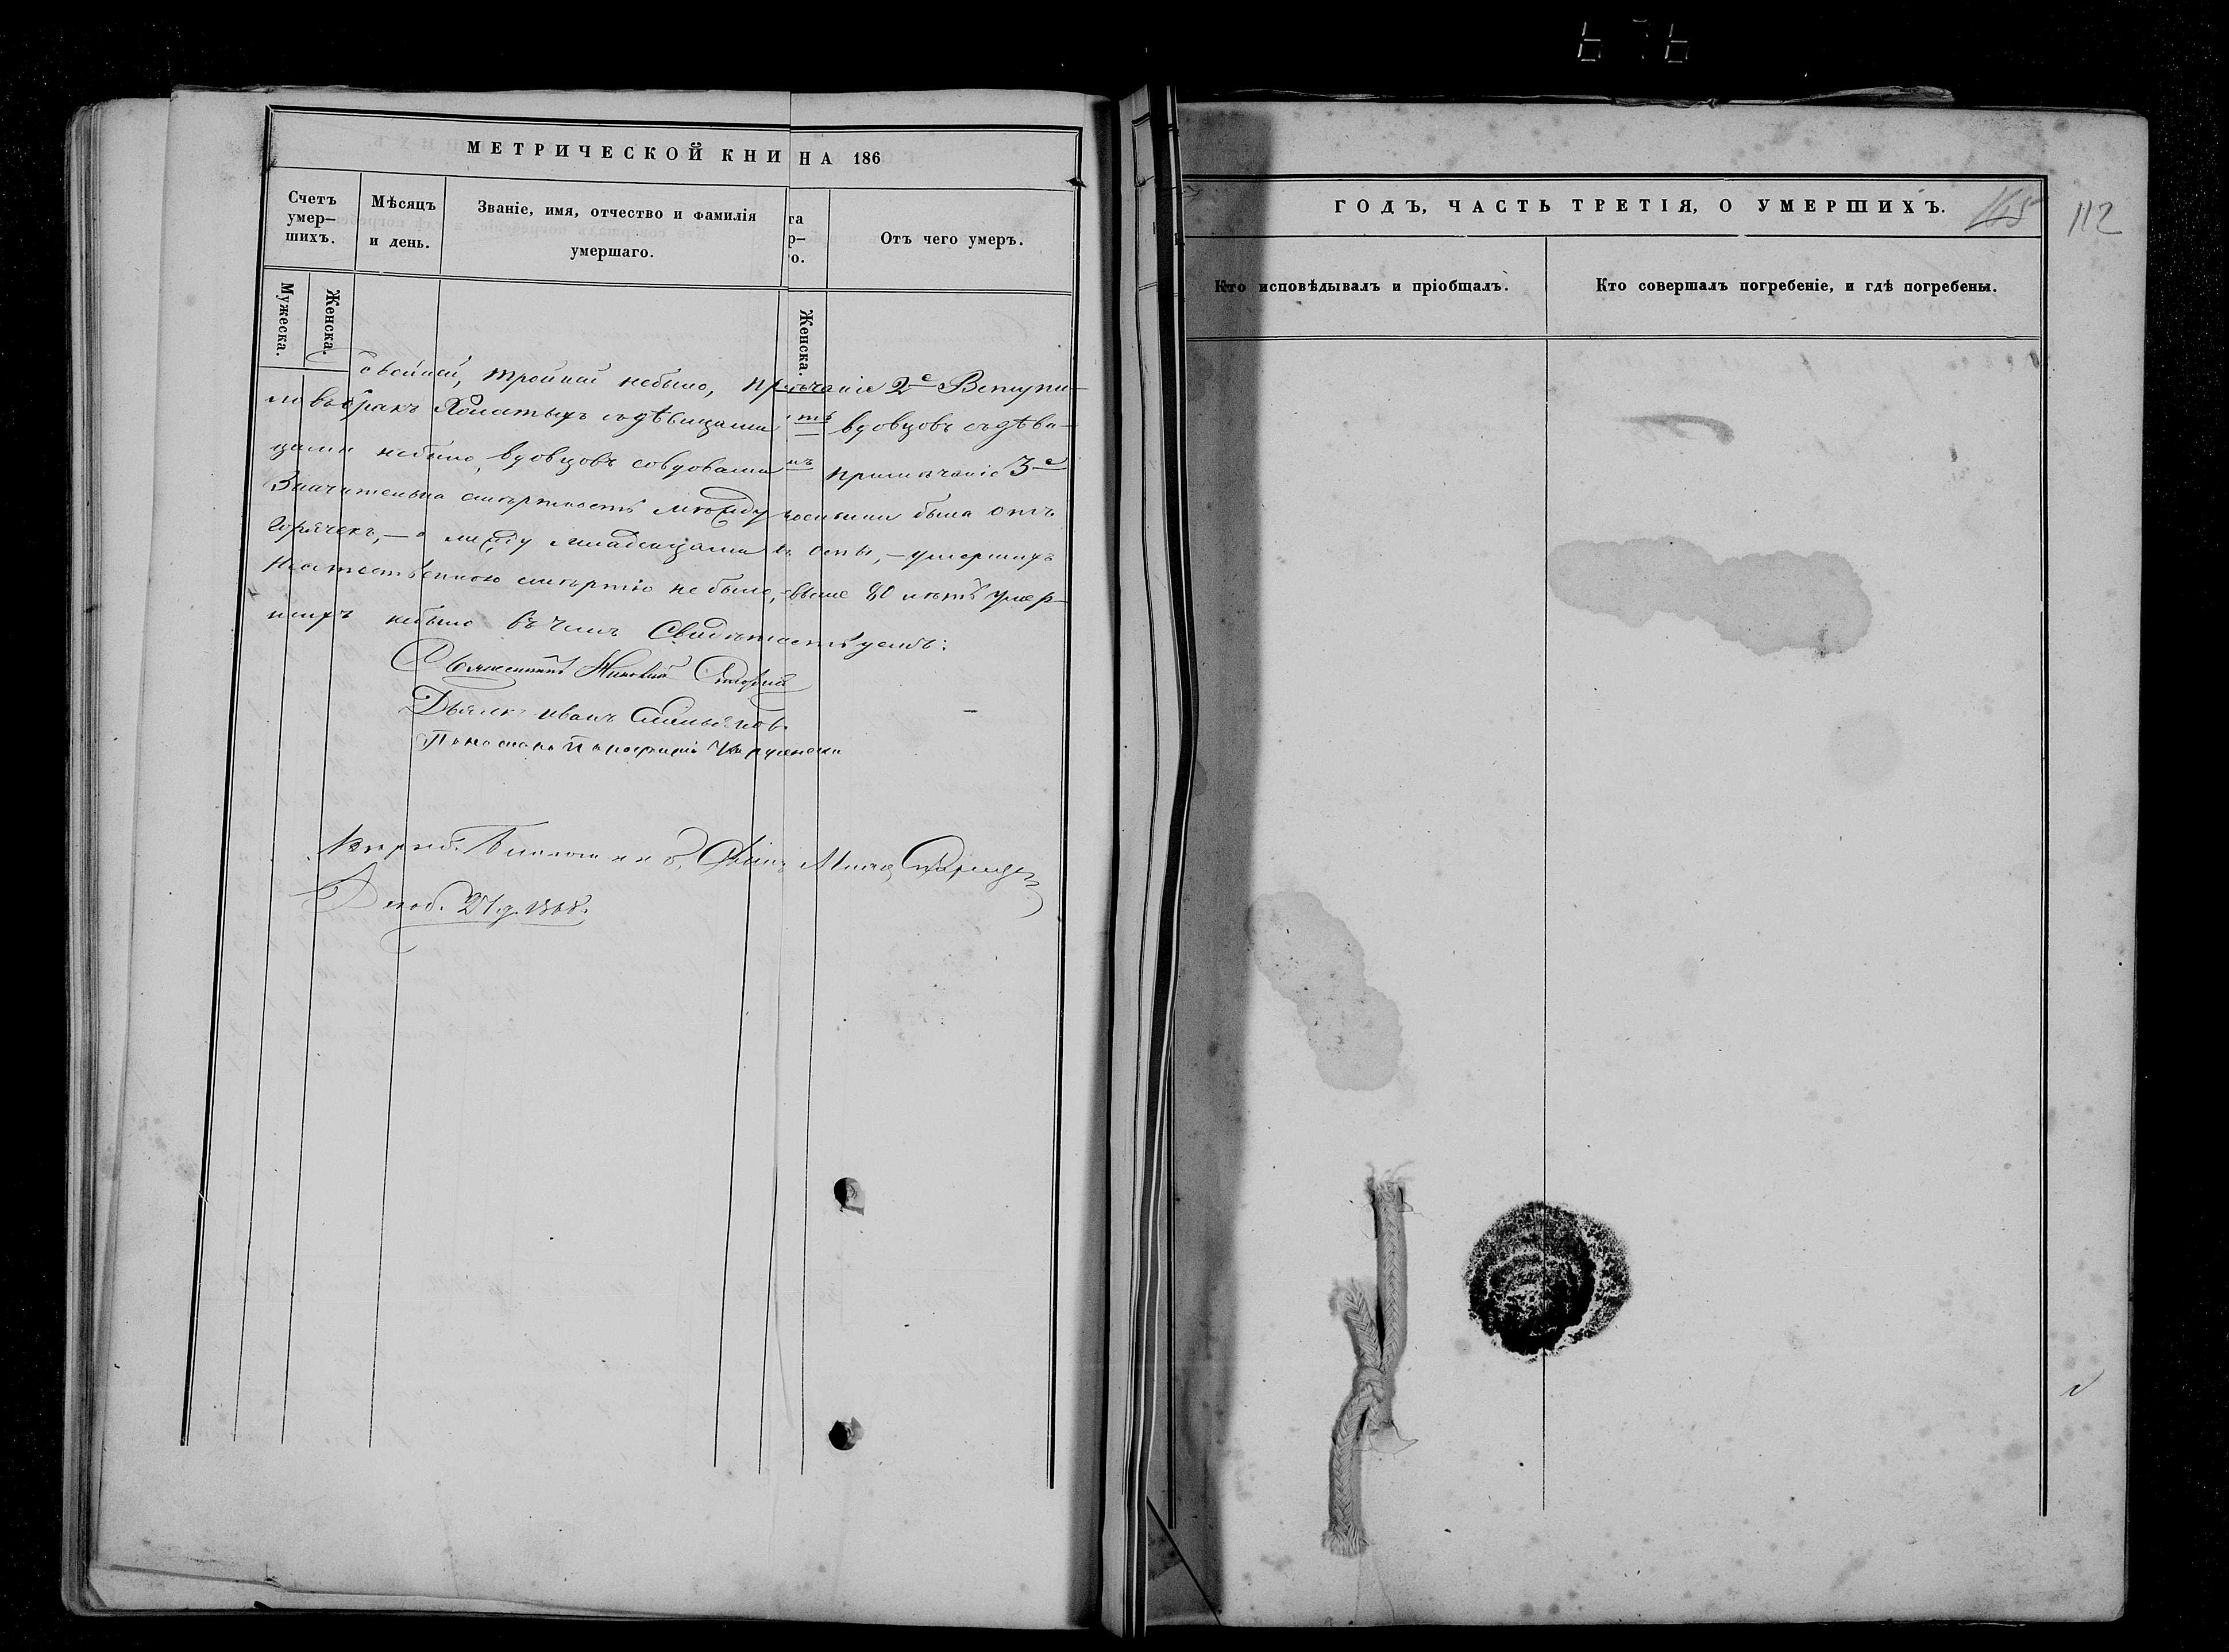 МЕТРИЧЕСКОЙ КНИ НА 186
Счетъ умер-шихъ.
Мѣсяцъ и день.
Званіе, имя, отчество и фамилія умершаго.
та
р-
о.
Отъ чего умеръ.
Мужеска.
Женска.
Женска.
двойней, тройней небыло, примѣчаніе 2е Вступи-
ло въ бракъ Холостыхъ съ дѣвицами вдовцовъ съ дѣви-
цами небыло, вдовцовъ совдовами примѣчаніе 3е
Значительна смертность между была отъ
Горячекъ, – а между младенцами оспы, – умершихъ
Неестественною смертію небыло, свыше 80 лѣтъ умер-
шихъ небыло въ чемъ Свидѣтельствуемъ:
Священникъ
Дьячекъ Иванъ
Пономарь
Декаб. 21 д. 1868.
ГОДЪ, ЧАСТЬ ТРЕТІЯ, О УМЕРШИХЪ.
165
112
Кто исповѣдывалъ и пріобщалъ.
Кто совершалъ погребеніе, и гдѣ погребены.